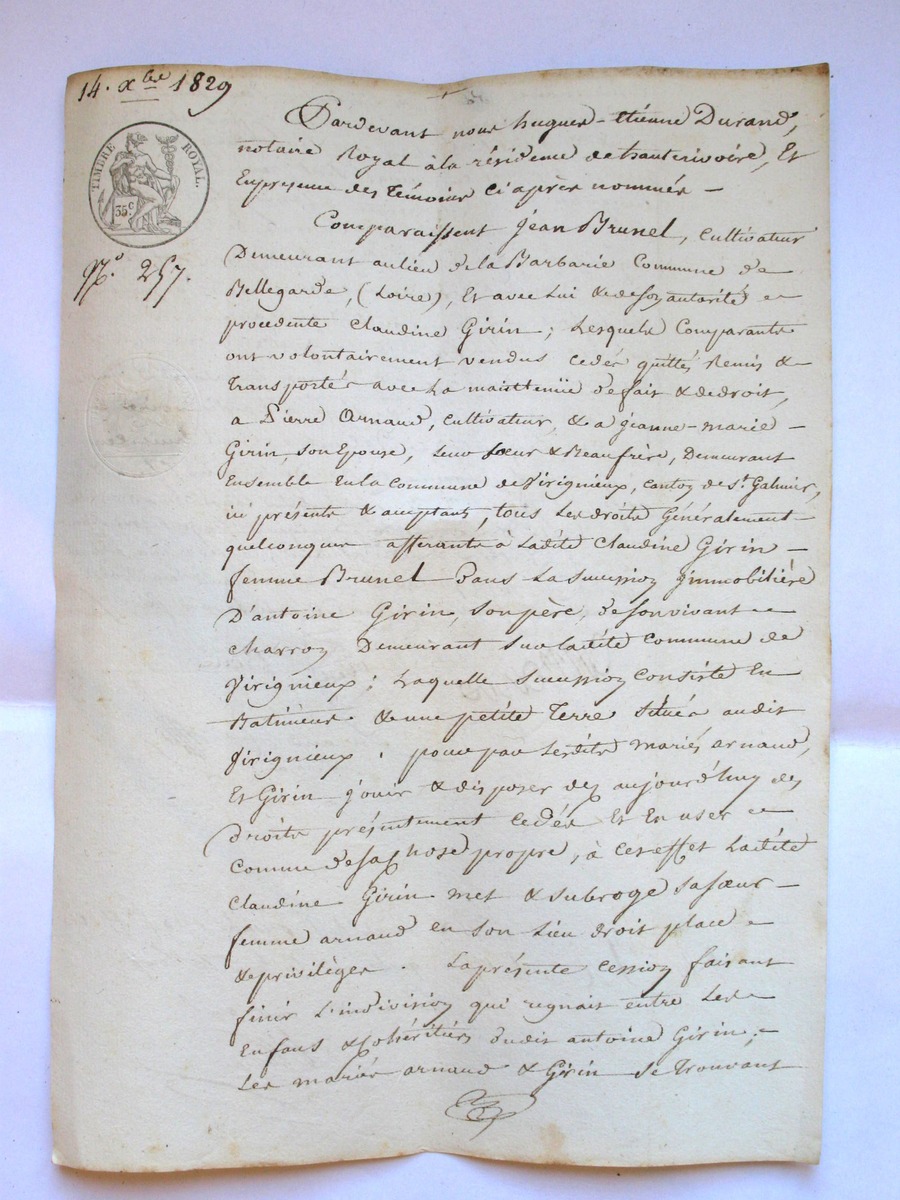 14. Xbre 1829
TIMBRE ROYAL.
35 c
N.º 257.
Pardevant nous hugues-Étienne Durand,
notaire Royal à la résidence de hauterivoire, Et
En présence des Témoins ci après nommés —
Comparaissent Jean Brunel, cultivateur
Demeurant au lieu de la Barbarie Commune de
Bellegarde, (Loire), Et avec Lui & de son autorité
procedente Claudine Girin ; Lesquels Comparants
ont volontairement vendus cedés quittés Remis &
Transportés avec La maintenüe de fait & de droit,
a Pierre Arnaud, cultivateur, & a jeanne-marie —
Girin, son Epouse, leur sœur & Beaufrère, Demeurant
Ensemble En la commune de Virignieux, canton de St. Galmier,
ici présents & acceptants, tous Les droits Généralement
quelconques afferants à Ladite Claudine Girin —
femme Brunel Dans La succession Immobilière
D'antoine Girin, son père, de son vivant
charron Demeurant sur ladite commune de
Virignieux ; Laquelle succession consiste En
Batiments & une petite Terre situés audit
Virignieux ; pour par Lesdits mariés arnaud,
Et Girin jouir & disposer dez aujourd'huy des
Droits présentement cedés Et En user
comme de sa chose propre, à cet effet Ladite
Claudine Girin met & subroge sa sœur —
femme arnaud en son Lieu droit place
& privilèges . La présente cession faisant
finir L'indivision qui regnait entre Les
Enfans & cohéritiers dudit antoine Girin ; —
Les mariés arnaud & Girin se Trouvant